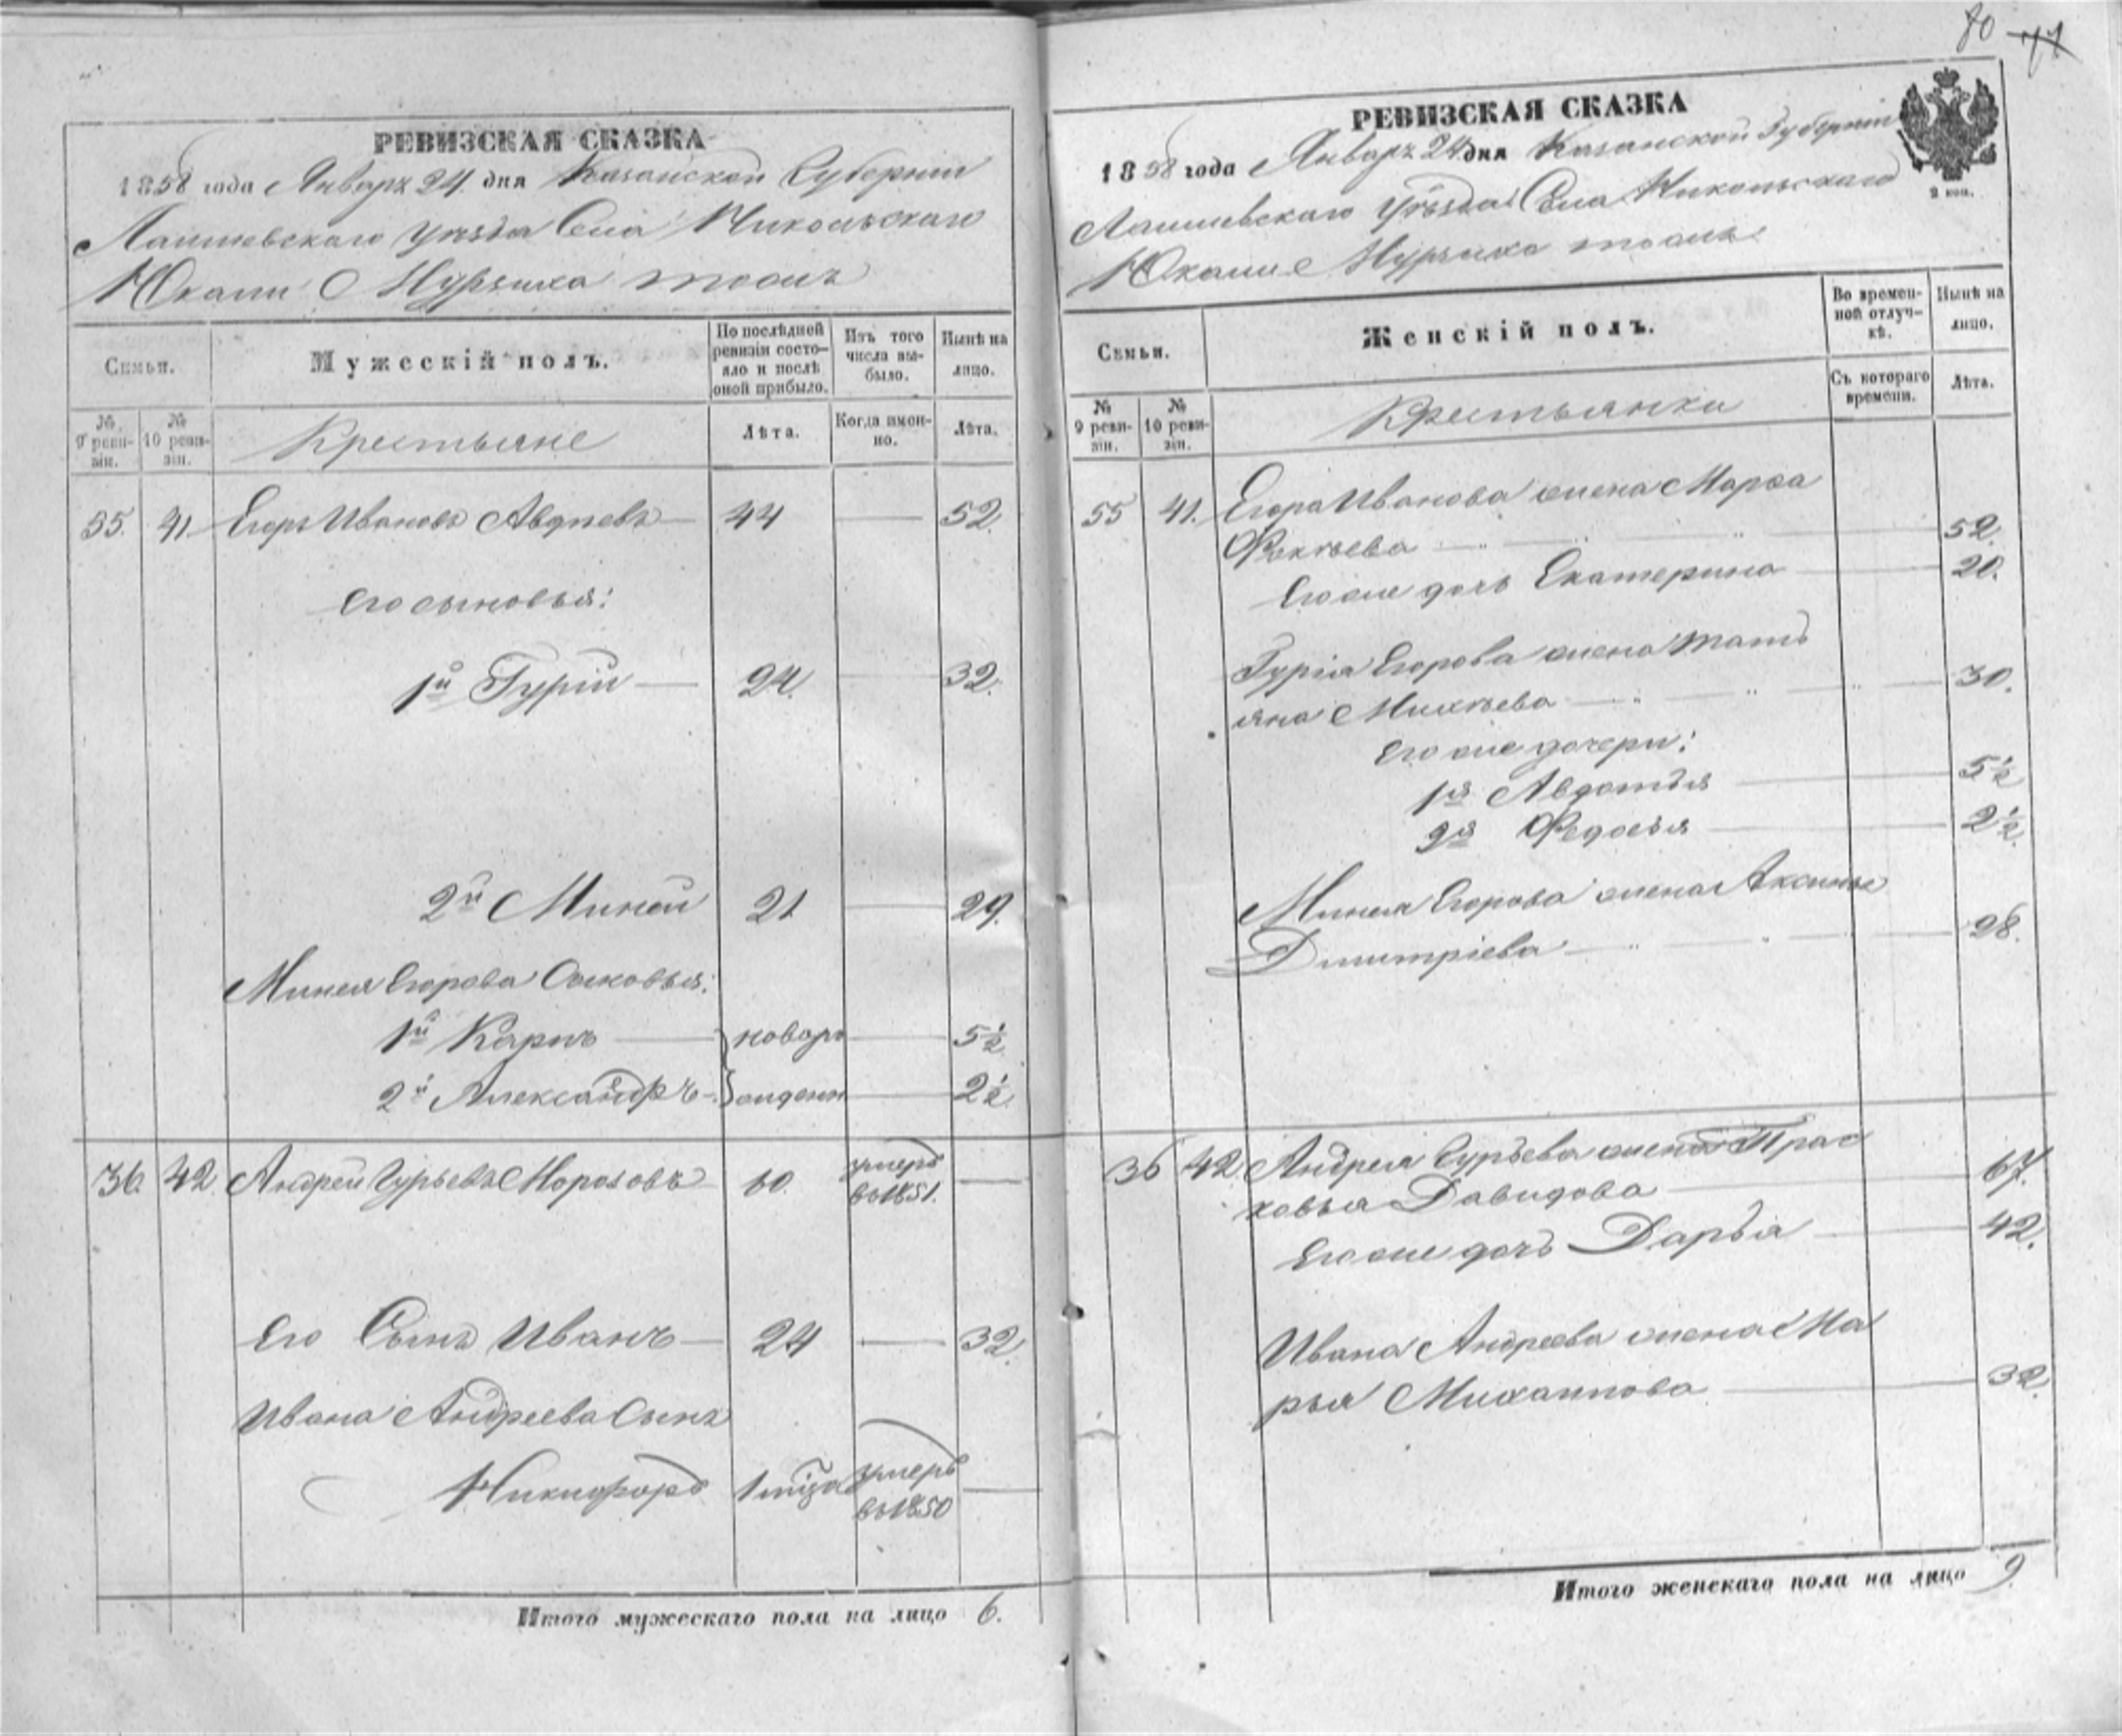 РЕВИЗСКАЯ СКАЗКА
1858 года Января 24 дня Казанской Губернии
Лаишевскаго уѣзда Села Никольскаго
Юкаши Нурмиха тожъ
Семьи.
Мужескій полъ.
По послѣдней ревизіи состояло и послѣ оной прибыло.
Изъ того числа выбыло.
Нынѣ на лицо.
№ 9 ревизіи.
№ 10 ревизіи.
Крестьяне
Лѣта.
Когда именно.
Лѣта.
35. 41 Егоръ Ивановъ Авдѣевъ 44 52.
Его сыновья:
1й Гурій 24. 32.
2й Миней 21 29.
Минея Егорова Сыновья:
1й Карпъ новоро 5½
2й Александръ жденн 2½
36. 42 Андрей Гурьевъ Морозовъ 60. умеръ въ 1851.
Его Сынъ Иванъ 24 32.
Ивана Андреева Сынъ
Никифоръ 1 умеръ въ 1850
Итого мужескаго пола на лицо 6.
80 71
РЕВИЗСКАЯ СКАЗКА
2 коп.
1858 года Января 24 дня Казанской Губерніи
Лаишевскаго Уѣзда Села Никольскаго
Юкаши Нурмиха тожъ
Семьи.
Женскій полъ.
Во временной отлучкѣ.
Нынѣ на лицо.
№ 9 ревизіи.
№ 10 ревизіи.
Крестьянки
Съ котораго времени.
Лѣта.
55 41. Егора Иванова жена Марфа
Фокѣева 52.
Его же дочь Екатерина 20.
Гурія Егорова жена Тать
яна Михѣева 30.
Его же дочери:
1я Авдотья 5½
2я Федосья 2½
Минея Егорова жена Аксинья
Дмитріева 28.
36 42 Андрея Гурьева жена Прас
ковья Давидова 67.
Его же дочь Дарья 42.
Ивана Андреева жена Ма
рья Михайлова 32.
Итого женскаго пола на лицо 9.